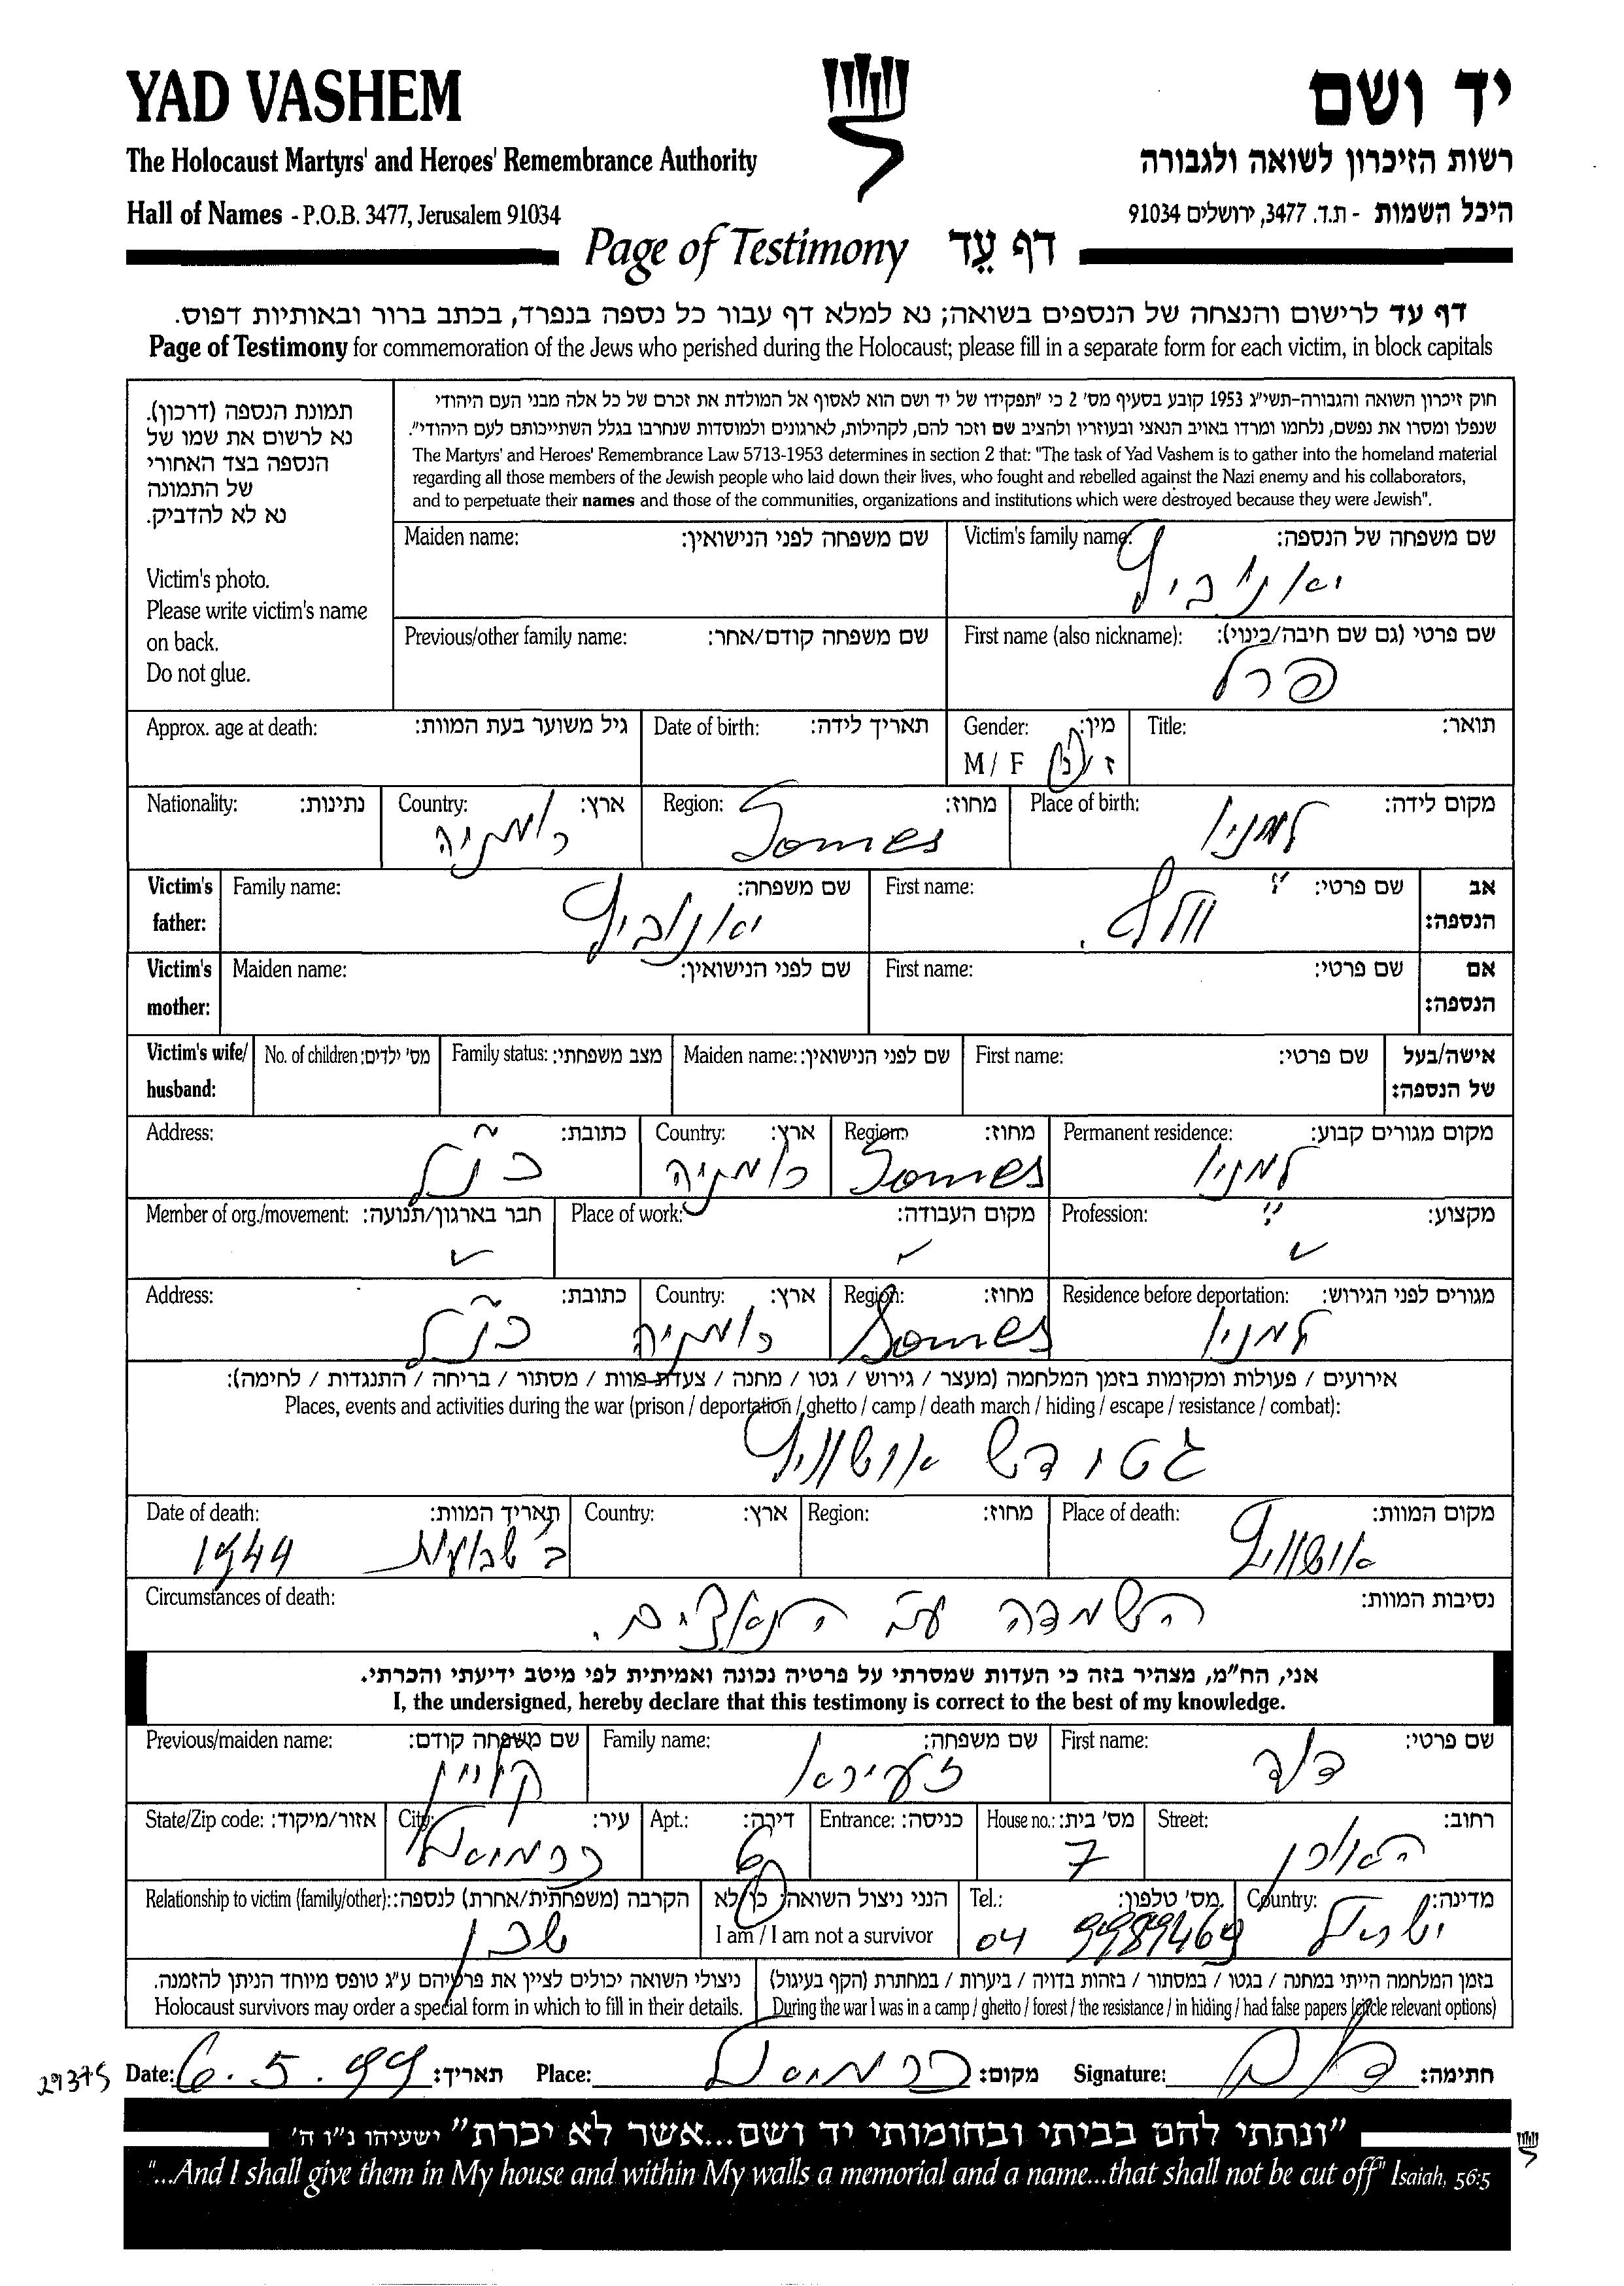 YAD VASHEM
יד ושם
The Holocaust Martyrs' and Heroes' Remembrance Authority
רשות הזיכרון לשואה ולגבורה
Hall of Names - P.O.B. 3477, Jerusalem 91034
היכל השמות - ת.ד. 3477, ירושלים 91034
Page of Testimony דף עֵד
דף עד לרישום והנצחה של הנספים בשואה; נא למלא דף עבור כל נספה בנפרד, בכתב ברור ובאותיות דפוס.
Page of Testimony for commemoration of the Jews who perished during the Holocaust; please fill in a separate form for each victim, in block capitals
תמונת הנספה (דרכון).
נא לרשום את שמו של
הנספה בצד האחורי
של התמונה
נא לא להדביק.
Victim's photo.
Please write victim's name
on back.
Do not glue.
חוק זיכרון השואה והגבורה-תשי"ג 1953 קובע בסעיף מס' 2 כי "תפקידו של יד ושם הוא לאסוף אל המולדת את זכרם של כל אלה מבני העם היהודי
שנפלו ומסרו את נפשם, נלחמו ומרדו באויב הנאצי ובעוזריו ולהציב שם וזכר להם, לקהילות, לארגונים ולמוסדות שנחרבו בגלל השתייכותם לעם היהודי".
The Martyrs' and Heroes' Remembrance Law 5713-1953 determines in section 2 that: "The task of Yad Vashem is to gather into the homeland material
regarding all those members of the Jewish people who laid down their lives, who fought and rebelled against the Nazi enemy and his collaborators,
and to perpetuate their names and those of the communities, organizations and institutions which were destroyed because they were Jewish".
Maiden name: שם משפחה לפני הנישואין:
Victim's family name: שם משפחה של הנספה:
יאנוביץ
Previous/other family name: שם משפחה קודם/אחר:
First name (also nickname): שם פרטי (גם שם חיבה/כינוי):
פרל
Approx. age at death: גיל משוער בעת המוות:
Date of birth: תאריך לידה:
Gender: מין:
M / F ז / נ
Title: תואר:
Nationality: נתינות:
Country: ארץ:
רומניה
Region: מחוז:
Somes
Place of birth: מקום לידה:
Victim's father:
Family name: שם משפחה:
יאנוביץ
First name: שם פרטי:
אב הנספה:
Victim's mother:
Maiden name: שם לפני הנישואין:
First name: שם פרטי:
אם הנספה:
Victim's wife/ husband:
No. of children: מס' ילדים:
Family status: מצב משפחתי:
Maiden name: שם לפני הנישואין:
First name: שם פרטי:
אישה/בעל של הנספה:
Address: כתובת:
כנ"ל
Country: ארץ:
רומניה
Region: מחוז:
Somes
Permanent residence: מקום מגורים קבוע:
Member of org./movement: חבר בארגון/תנועה:
Place of work: מקום העבודה:
Profession: מקצוע:
Address: כתובת:
כנ"ל
Country: ארץ:
רומניה
Region: מחוז:
Somes
Residence before deportation: מגורים לפני הגירוש:
אירועים / פעולות ומקומות בזמן המלחמה (מעצר / גירוש / גטו / מחנה / צעדת מוות / מסתור / בריחה / התנגדות / לחימה):
Places, events and activities during the war (prison / deportation / ghetto / camp / death march / hiding / escape / resistance / combat):
גטו דש אושוויץ
Date of death: תאריך המוות:
ב שבועות 1944
Country: ארץ:
Region: מחוז:
Place of death: מקום המוות:
אושוויץ
Circumstances of death: נסיבות המוות:
השמדה ע"י הנאצים.
אני, הח"מ, מצהיר בזה כי העדות שמסרתי על פרטיה נכונה ואמיתית לפי מיטב ידיעתי והכרתי.
I, the undersigned, hereby declare that this testimony is correct to the best of my knowledge.
Previous/maiden name: שם משפחה קודם:
קליין
Family name: שם משפחה:
זעירא
First name: שם פרטי:
דוד
State/Zip code: אזור/מיקוד:
City: עיר:
כרמיאל
Apt.: דירה:
6
Entrance: כניסה:
House no.: מס' בית:
7
Street: רחוב:
האורן
Relationship to victim (family/other): הקרבה (משפחתית/אחרת) לנספה:
שכן
הנני ניצול השואה: כן/לא
I am / I am not a survivor
Tel.: מס' טלפון:
04 9989469
Country: מדינה:
ישראל
ניצולי השואה יכולים לציין את פרטיהם ע"ג טופס מיוחד הניתן להזמנה.
Holocaust survivors may order a special form in which to fill in their details.
בזמן המלחמה הייתי במחנה / בגטו / במסתור / בזהות בדויה / ביערות / במחתרת (הקף בעיגול)
During the war I was in a camp / ghetto / forest / the resistance / in hiding / had false papers (circle relevant options)
29375
Date: 6.5.99 תאריך:
Place: כרמיאל מקום:
Signature: חתימה:
"ונתתי להם בביתי ובחומותי יד ושם...אשר לא יכרת" ישעיהו נ"ו ה'
"...And I shall give them in My house and within My walls a memorial and a name...that shall not be cut off" Isaiah, 56:5